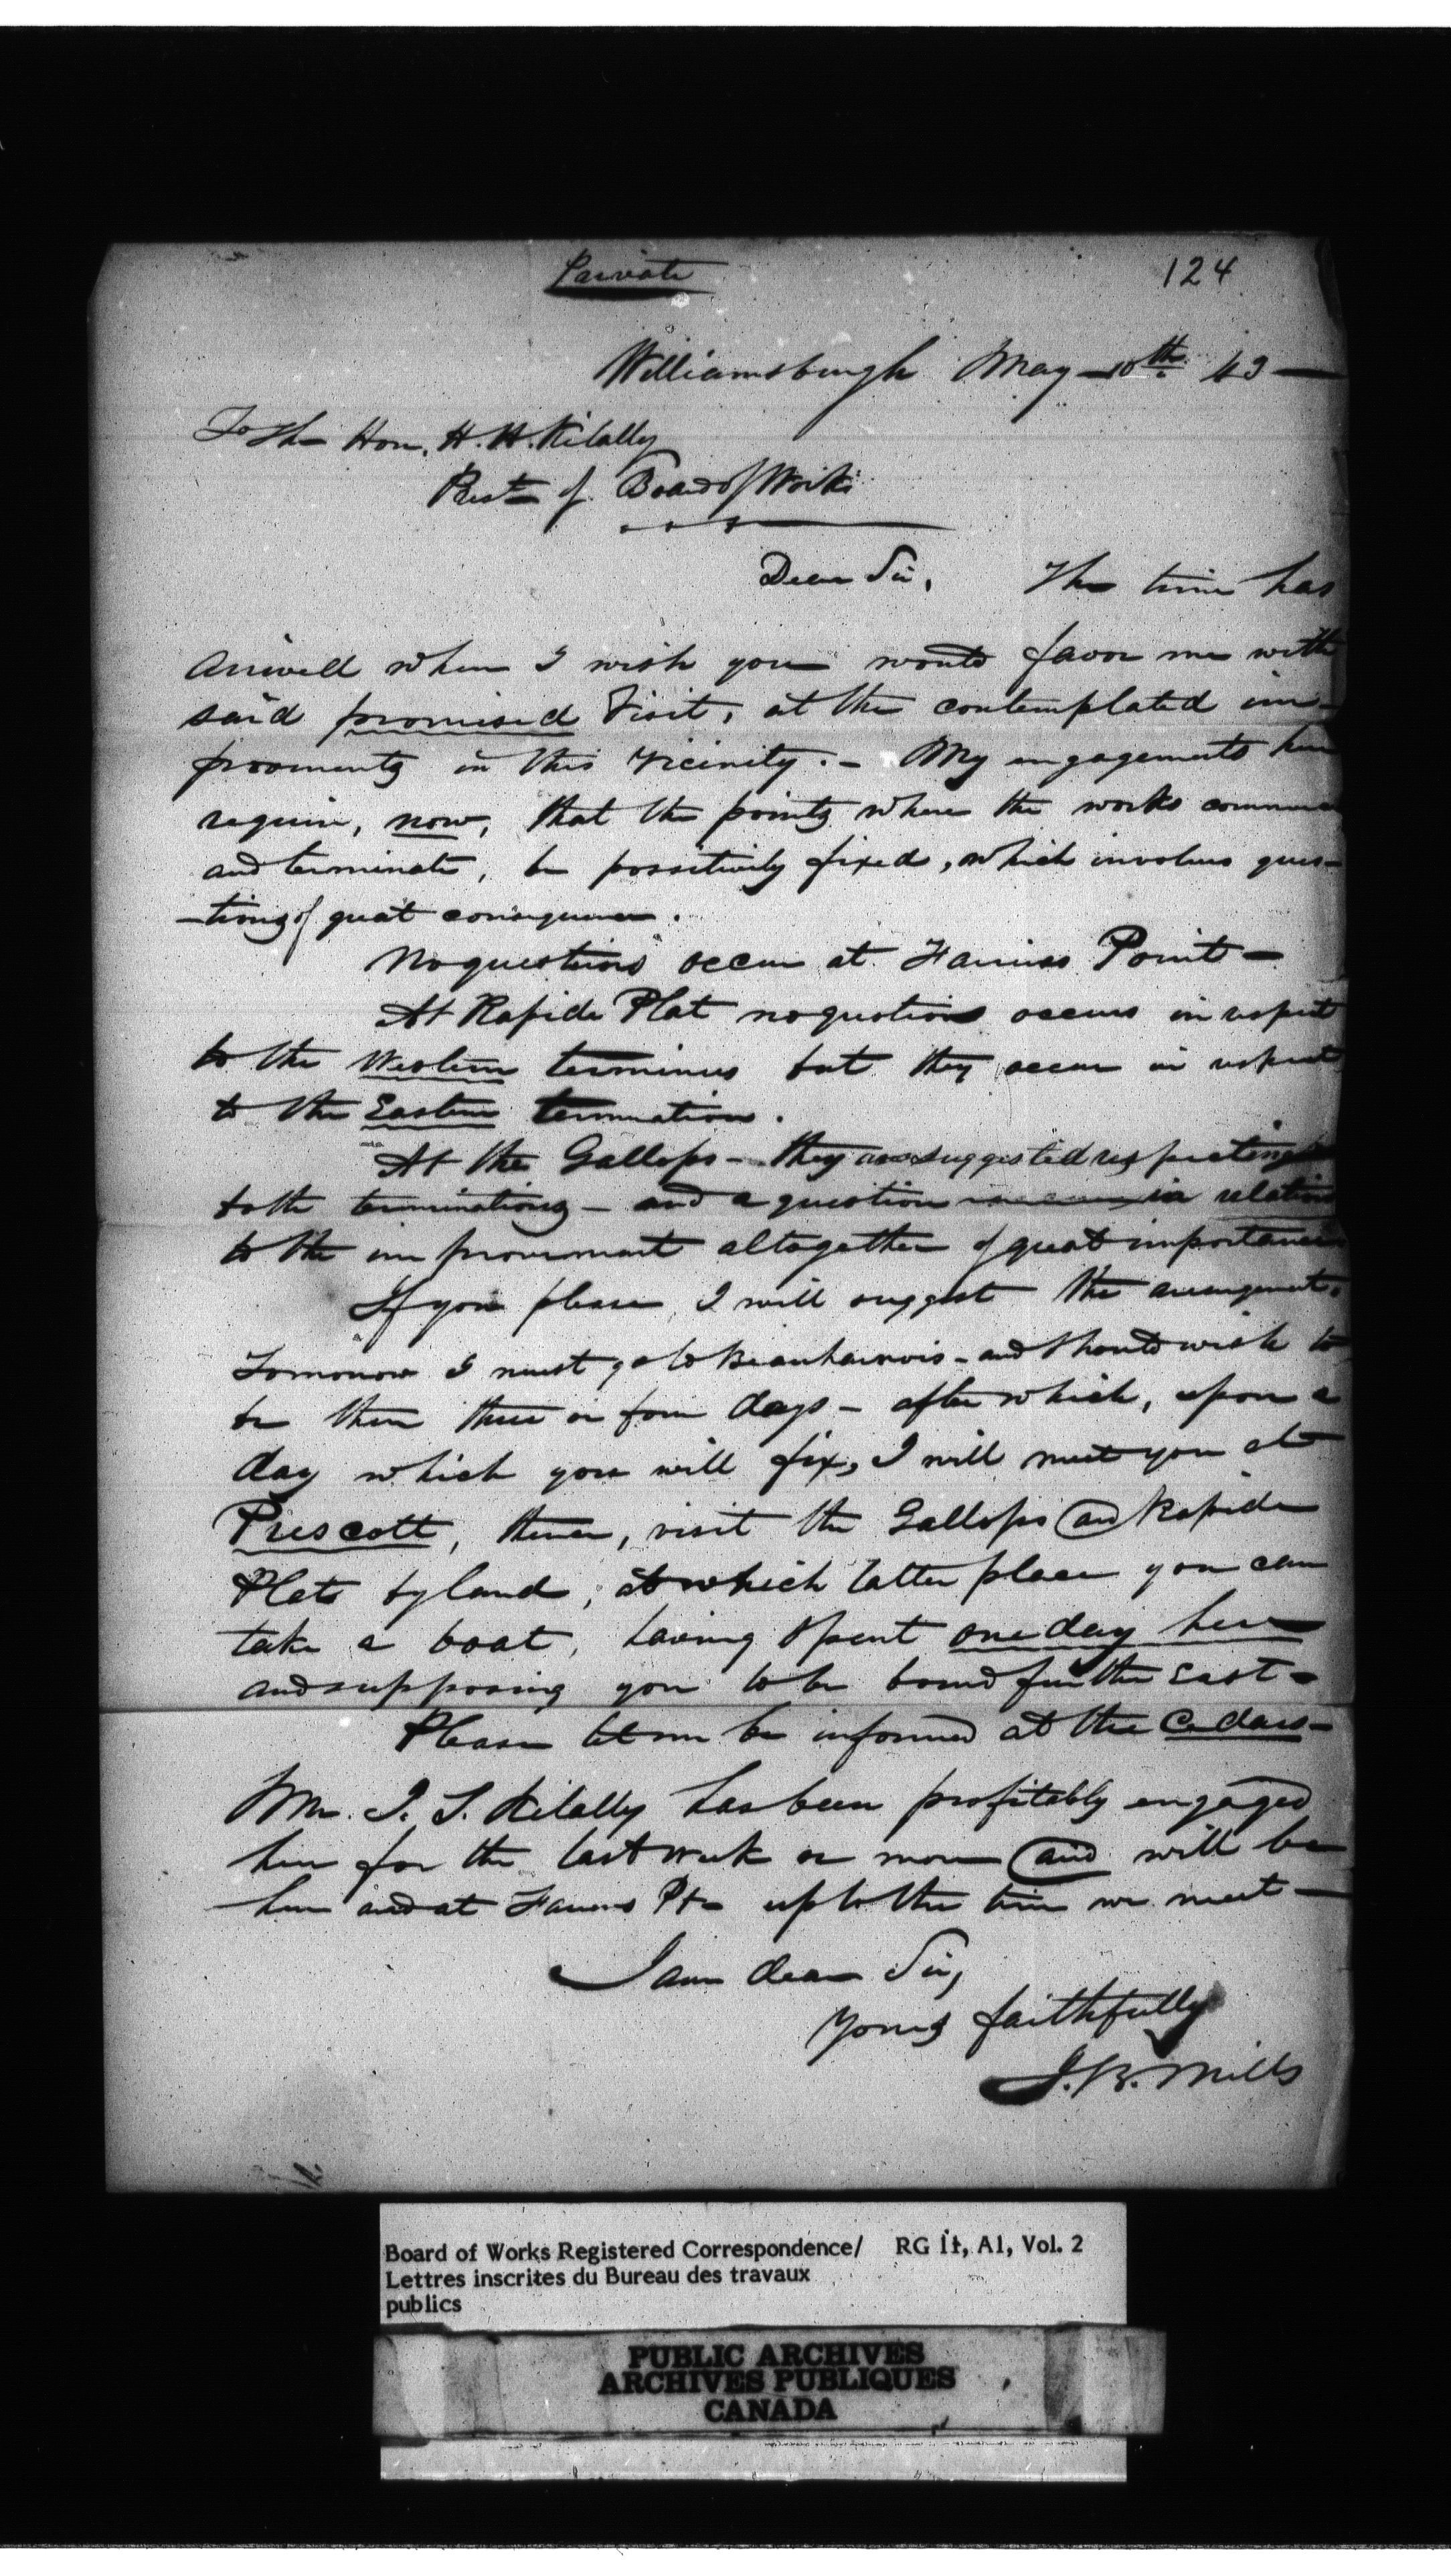 Private
124
Williamsburgh May 10th 43 —
To The Hon. H. H. Kilally
Prest of Board of Works
Dear Sir, The time has
arrived when I wish you would favor me with
said promised Visit, at the contemplated im-
provments in this Vicinity. - My engagements here
require, now, that the points where the works commence
and terminate, be possitively fixed, which involves ques-
-tions of great consequence.
No questions occur at Farrins Point -
At Rapide Plat no questions occurs in respect
to the Western terminus but they occur in respect
to the Eastern termination.
At the Gallops - they are suggested respecting
both terminations - and a question in relation
to the improvement altogether of great importance
If you please I will suggest the arrangement.
Tomorrow I must go to Beauharnois - and should wish to
be there three or four days - after which, upon a
day which you will fix, I will meet you at
Prescott, thence, visit the Gallops and Rapide
Plate by land, at which latter place you can
take a boat, having spent one day here
and supposing you to be bound further East -
Please let me be informed at the Cedars -
Mr. J. S. Kilally has been profitably engaged
here for the last week or more and will be
here and at Farrens Pt - up to the time we meet -
I am dear Sir,
Yours faithfully
J. B. Mills
Board of Works Registered Correspondence/ RG 11, A1, Vol. 2
Lettres inscrites du Bureau des travaux
publics
PUBLIC ARCHIVES
ARCHIVES PUBLIQUES
CANADA